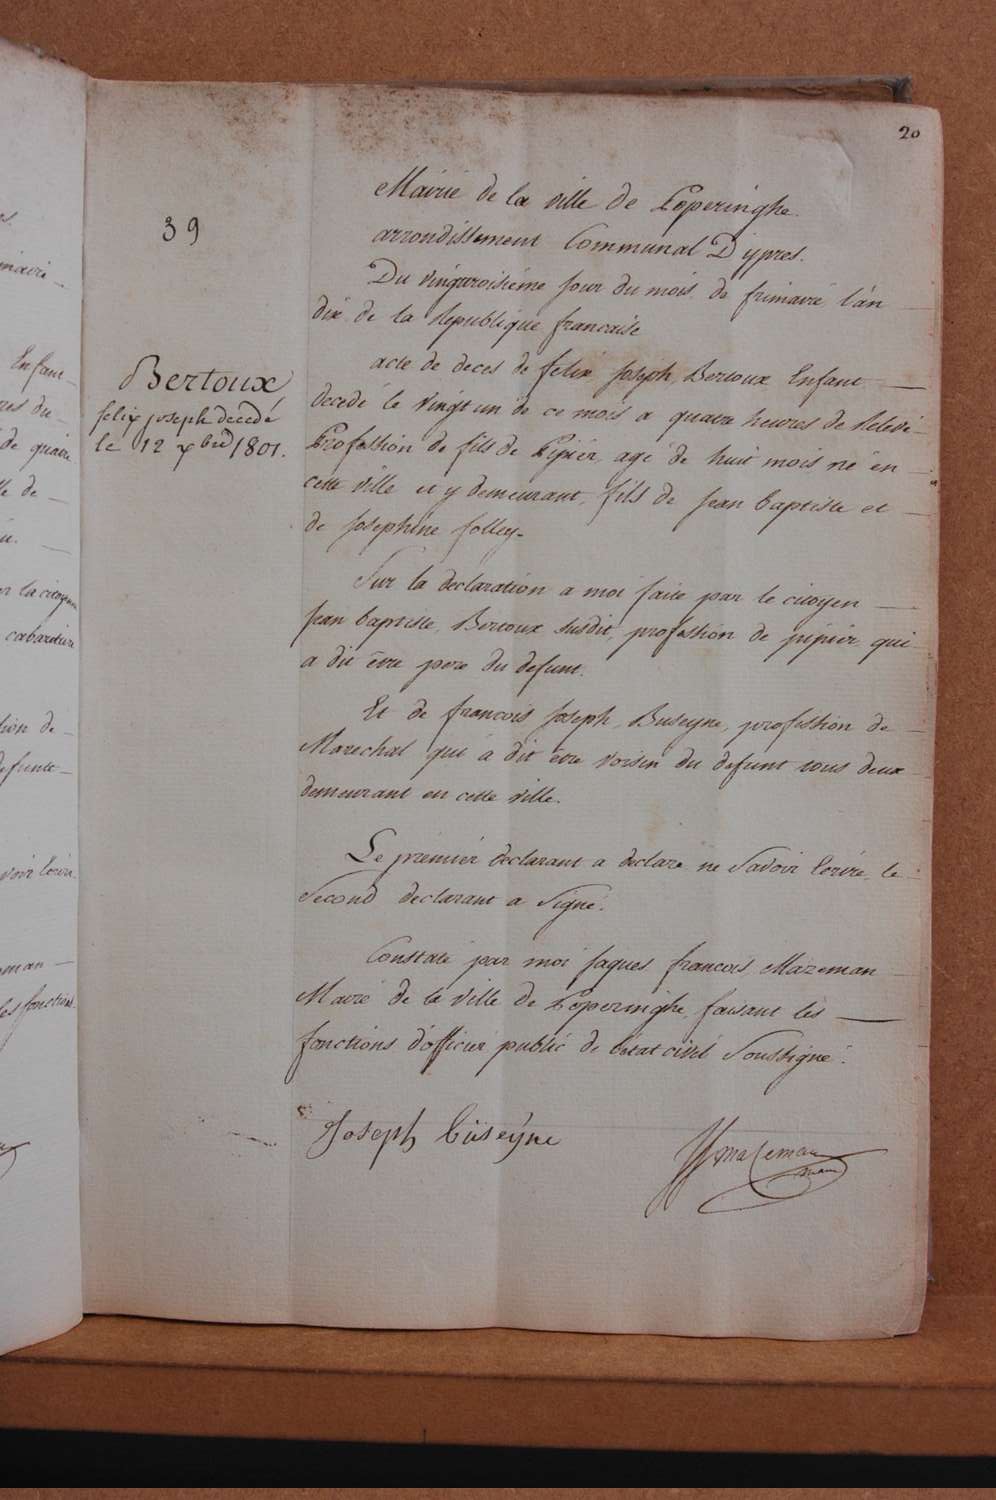 20
39
Mairie de la ville de Poperinghe.
arrondissement Communal D'ypres.
Du vingtroisiéme jour du mois de frimaire l'an
dix de la Republique francaise
acte de deces de felix Joseph Bertoux Enfant
decedé le vingt un de ce mois a quatre heures de Relevé
Profession de fils de Pipier, agé de huit mois né en
cette ville et y demeurant, fils de Jean baptiste et
de Josephine folley.
Bertoux
felix joseph décédé
le 12 xbre 1801.
Sur la declaration a moi faite par le citoyen
Jean baptiste Bertoux susdit, profession de pipier, qui
a dit être pere du defunt.
Et de francois Joseph Buseyne, profession de
Marechal qui a dit être voisin du defunt tous deux
demeurant en cette ville.
Le premier declarant a declare ne Savoir Ecrire, le
Second declarant a Signé.
Constaté par moi Jaques francois Mazeman
Maire de la ville de Poperinghe, faisant les
fonctions d'officier public de l'etat civil Soussigné.
Joseph Büseÿne
Mazeman
Enfant
de quatre
lle de
la citoyenne
cabaretiere
tion de
defunte
voir Ecrire
eman
les fonctions